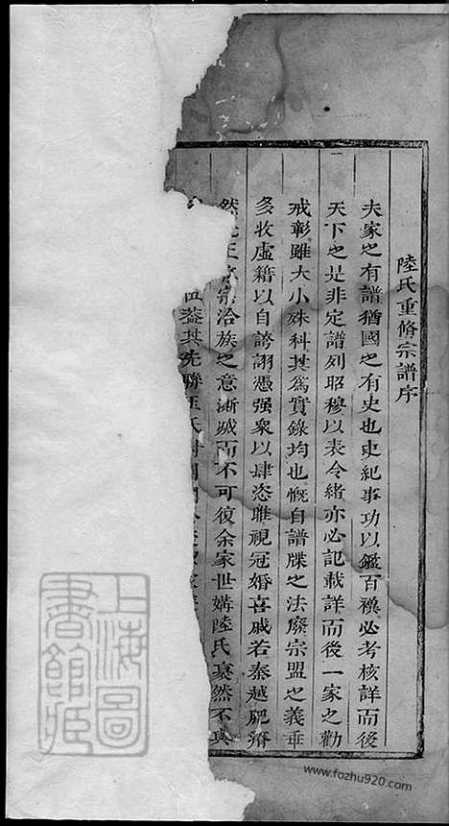 陸氏重脩宗譜序
夫家之有譜猶國之有史也史紀事功以鑑百襈必考核詳而後
天下之是非定譜列昭穆以表令緒亦必記載詳而後一家之勸
戒彰雖大小殊科其為實錄均也慨自譜牒之法廢宗盟之義乖
多收虛籍以自誇詡憑强衆以肆恣雎視冠婚喜戚若秦越肥瘠
然 宗洽族之意漸滅而不可復余家世媾陸氏戛然不與
蓋其先
上海圖書館藏
www.fozhu920.com